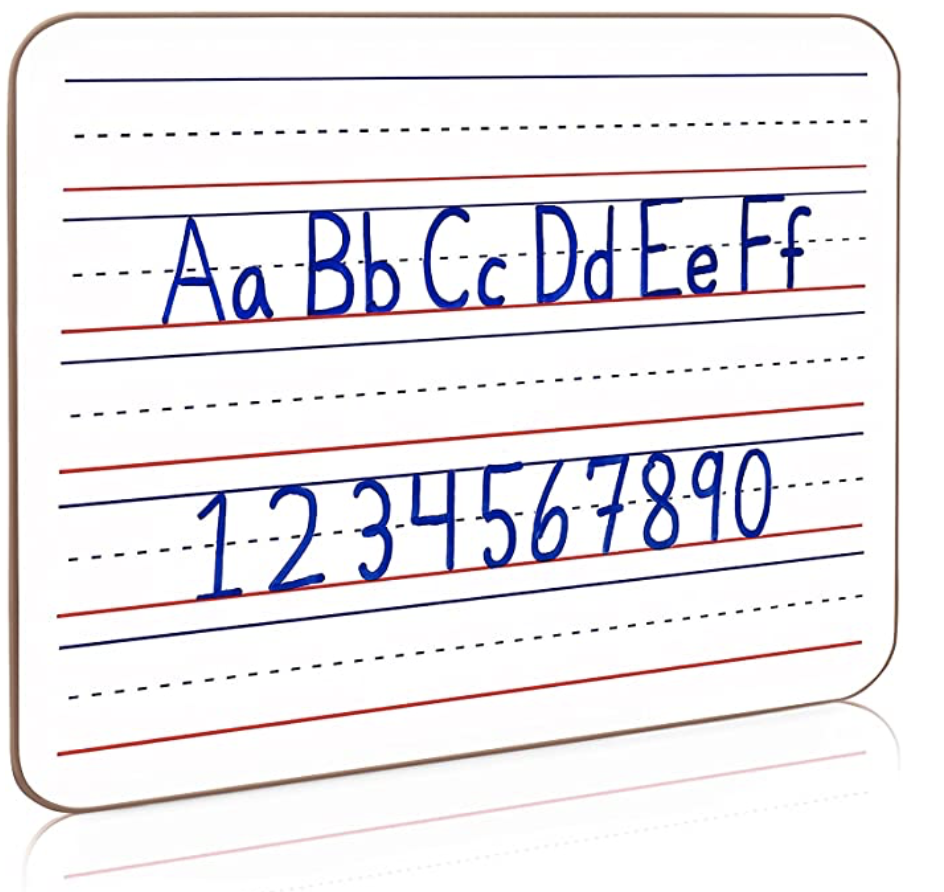 Aa Bb Cc Dd Ee Ff
1234567890